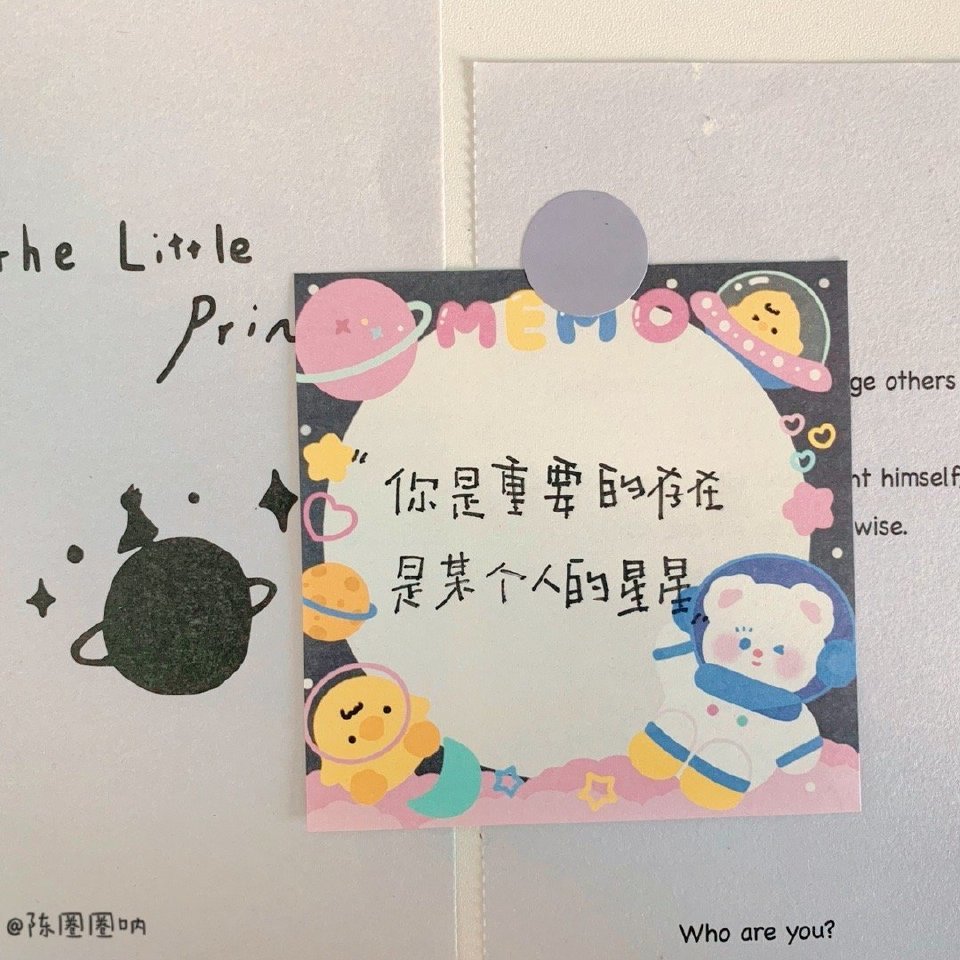 the Little
Prin
MEMO
"你是重要的存在
是某个人的星星"
ge others
nt himself,
wise.
Who are you?
@陈圈圈呐